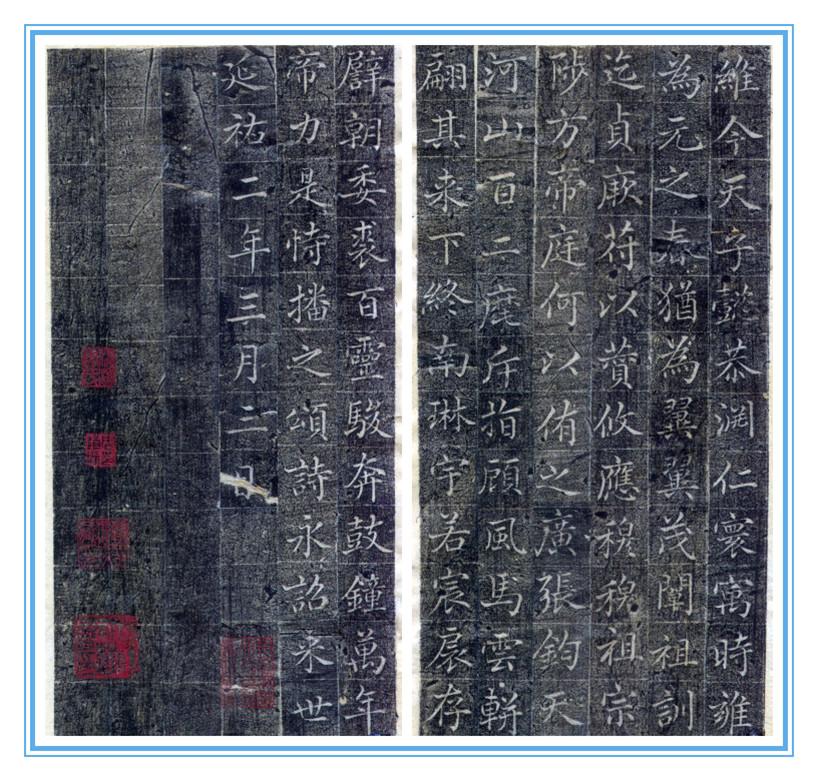 維今天子懿恭渊仁寰寓時雍
為元之春猶為翼翼茂闡祖訓
迄貞厥苻以賛攸應穆穆祖宗
陟方帝庭何以侑之廣張鈞天
河山百二麾斥指顧風馬雲軿
翩其来下終南琳宇若宸扆存
譬朝委裘百靈駿奔鼓鐘萬年
帝力是恃播之頌詩永詔来世
延祐二年三月二日